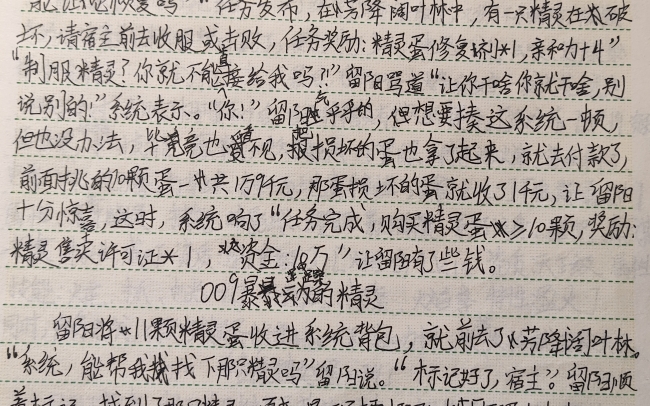 能让它恢复吗" "任务发布,在芬降阔叶林中,有一只精灵在大破
坏,请宿主前去收服或击败,任务奖励:精灵蛋修复剂*1,亲和力+4"
"制服精灵?你就不能直接给我吗?!"留阳骂道"让你干啥你就干啥,别
说别的!"系统表示。"你!"留阳气乎乎的,但想要揍这系统一顿,
但也没办法,毕竟也看不见,报损坏的蛋也拿了起来,就去付款了,
前面挑的10颗蛋一共1万9千元,那蛋损坏的蛋就收了1千元,让留阳
十分惊喜,这时,系统响了"任务完成,购买精灵蛋≥10颗,奖励:
精灵售卖许可证*1,资金:10万"让留阳有了些钱。
009暴躁的精灵
留阳将11颗精灵蛋收进系统背包,就前去了芬降阔叶林。
"系统,能帮我找下那只精灵吗"留阳说。"标记好了,宿主"。留阳顺
着标记,找到了那只精灵